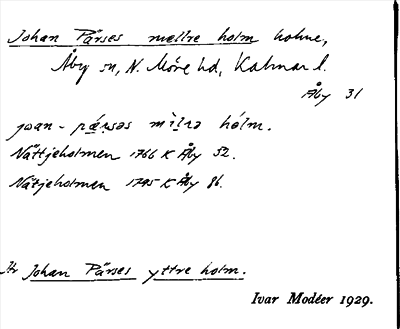 Johan Pärses mellre holm holme,
Åby sn, N. Möre hd, Kalmar l.
Åby 31
joan - pæ̀ṣəs mìlrə hólm.
Nättjeholmen 1766 K Åby 52.
Nätjeholmen 1795 K Åby 86.
Jfr Johan Pärses yttre holm.
Ivar Modéer 1929.